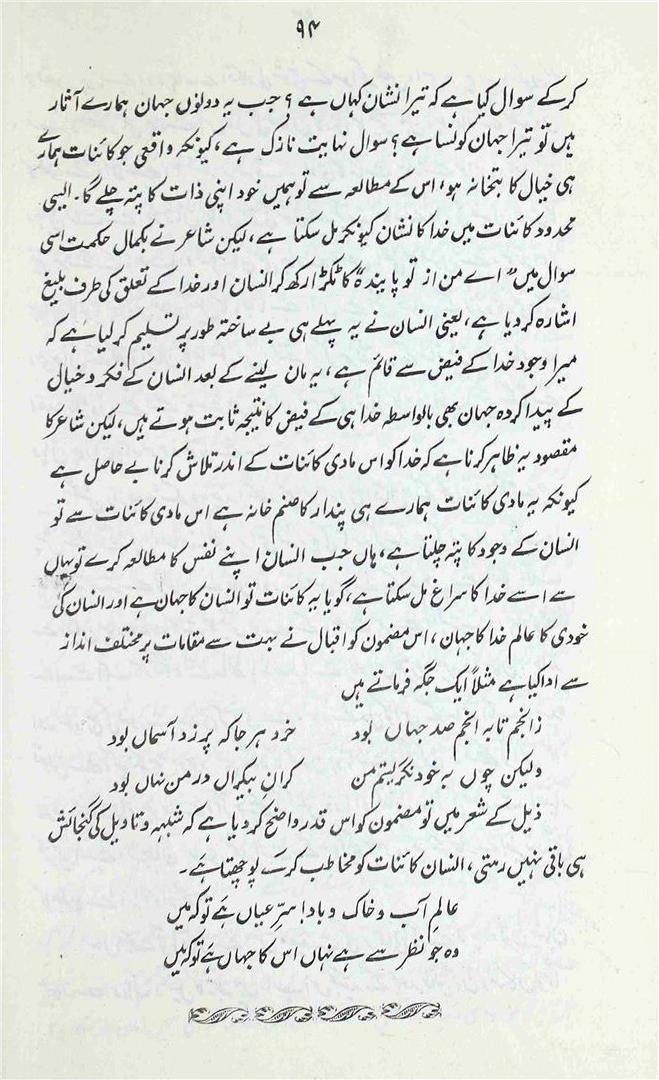 ۹۴
کر کے سوال کیا ہے کہ تیرا نشان کہاں ہے؟ جب یہ دونوں جہان ہمارے آثار
ہیں تو تیرا جہان کونسا ہے؟ سوال نہایت نازک ہے، کیونکہ واقعی جو کائنات ہمارے
ہی خیال کا بتخانہ ہو، اس کے مطالعہ سے تو ہمیں خود اپنی ذات کا پتہ چلے گا۔ ایسی
محدود کائنات میں خدا کا نشان کیونکر مل سکتا ہے، لیکن شاعر نے بکمال حکمت اسی
سوال میں "اے من از تو پایندہ" کا ٹکڑا رکھ کر انسان اور خدا کے تعلق کی طرف بلیغ
اشارہ کر دیا ہے، یعنی انسان نے یہ پہلے ہی بے ساختہ طور پر تسلیم کر لیا ہے کہ
میرا وجود خدا کے فیض سے قائم ہے، یہ مان لینے کے بعد انسان کے فکر و خیال
کے پیدا کردہ جہان بھی بالواسطہ خدا ہی کے فیض کا نتیجہ ثابت ہوتے ہیں، لیکن شاعر کا
مقصود یہ ظاہر کرنا ہے کہ خدا کو اس مادی کائنات کے اندر تلاش کرنا بے حاصل ہے
کیونکہ یہ مادی کائنات ہمارے ہی پندار کا صنم خانہ ہے اس مادی کائنات سے تو
انسان کے وجود کا پتہ چلتا ہے، ہاں جب انسان اپنے نفس کا مطالعہ کرے تو یہاں
سے اسے خدا کا سراغ مل سکتا ہے، گویا یہ کائنات تو انسان کا جہان ہے اور انسان کی
خودی کا عالم خدا کا جہان، اس مضمون کو اقبال نے بہت سے مقامات پر مختلف انداز
سے ادا کیا ہے مثلاً ایک جگہ فرماتے ہیں
ز انجم تا بہ انجم صد جہاں بود خرد ہر جا کہ پر زد آسماں بود
ولیکن چوں بہ خود نگریستم من کرانِ بیکراں در من نہاں بود
ذیل کے شعر میں تو مضمون کو اس قدر واضح کر دیا ہے کہ شبہہ و تاویل کی گنجائش
ہی باقی نہیں رہتی، انسان کائنات کو مخاطب کرکے پوچھتا ہے۔
عالمِ آب و خاک و باد! سرِّ عیاں ہے تو کہ میں
وہ جو نظر سے ہے نہاں اس کا جہاں ہے تو کہ میں